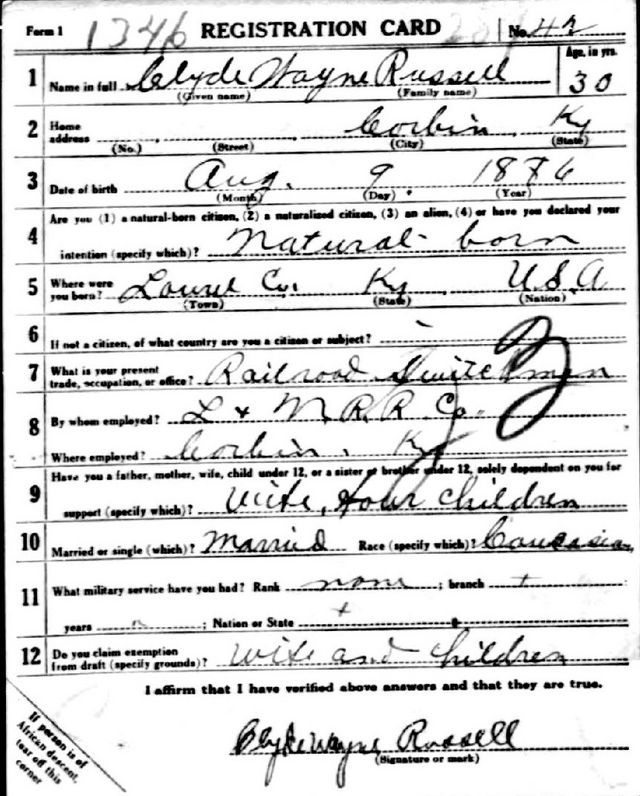 Form 1 1346 REGISTRATION CARD No. 42
1 Name in full Clyde Wayne Russell Age, in yrs. 30
(Given name) (Family name)
2 Home address Corbin, Ky
(No.) (Street) (City) (State)
3 Date of birth Aug. 9 1886
(Month) (Day) (Year)
4 Are you (1) a natural-born citizen, (2) a naturalized citizen, (3) an alien, (4) or have you declared your
intention (specify which)? Natural born
5 Where were you born? Laurel Co. Ky U.S.A
(Town) (State) (Nation)
6 If not a citizen, of what country are you a citizen or subject? -
7 What is your present trade, occupation, or office? Railroad Switchman
8 By whom employed? L & N. R. R Co.
Where employed? Corbin, Ky
9 Have you a father, mother, wife, child under 12, or a sister or brother under 12, solely dependent on you for
support (specify which)? Wife, four children
10 Married or single (which)? Married Race (specify which)? Caucasian
11 What military service have you had? Rank none ; branch
years ; Nation or State
12 Do you claim exemption from draft (specify grounds)? Wife and children
I affirm that I have verified above answers and that they are true.
Clyde Wayne Russell
(Signature or mark)
If person is of
African descent,
tear off this
corner